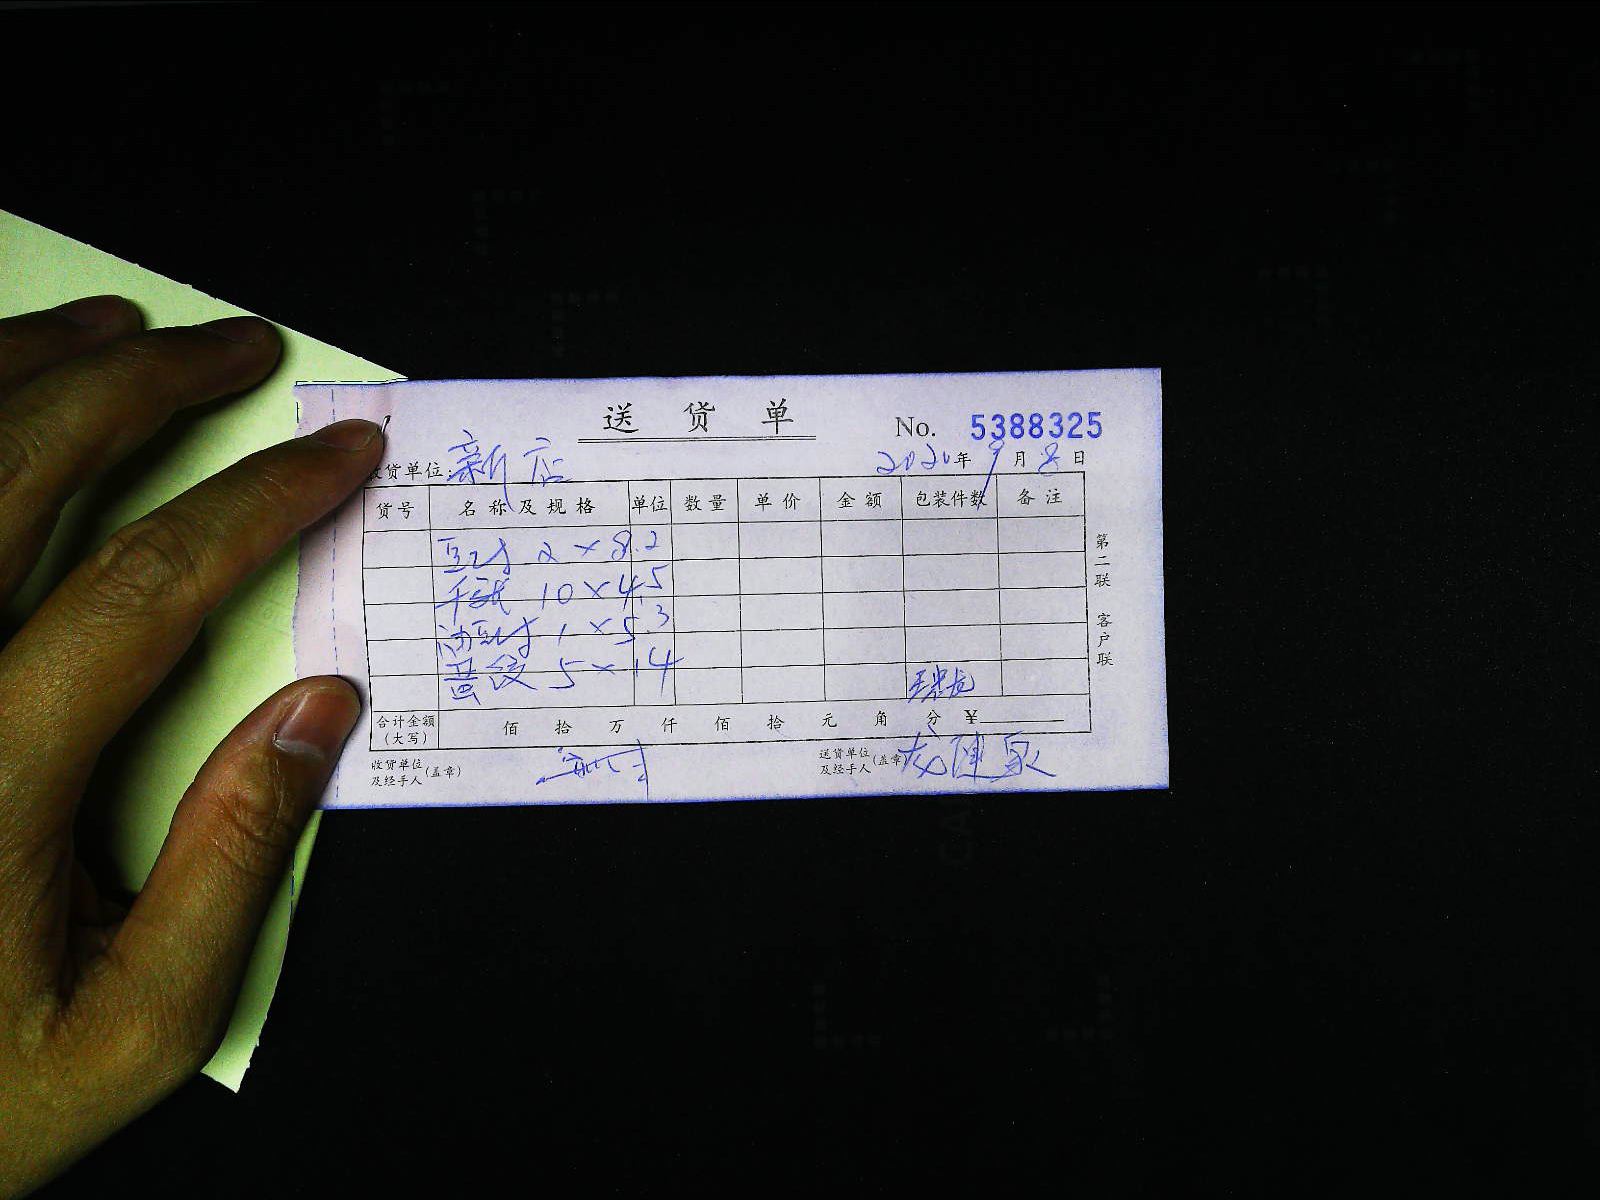 送 货 单
No. 5388325
收货单位: 新店
2020年 9月 8日
货号 名称及规格 单位 数量 单价 金额 包装件数 备注
豆 2 × 8.2
千张 10 × 4.5
油豆 1 × 5.3
5 × 14
合计金额(大写) 佰 拾 万 仟 佰 拾 元 角 分 ¥
收货单位及经手人(盖章)
送货单位及经手人(盖章) 龙健泉
第二联 客户联